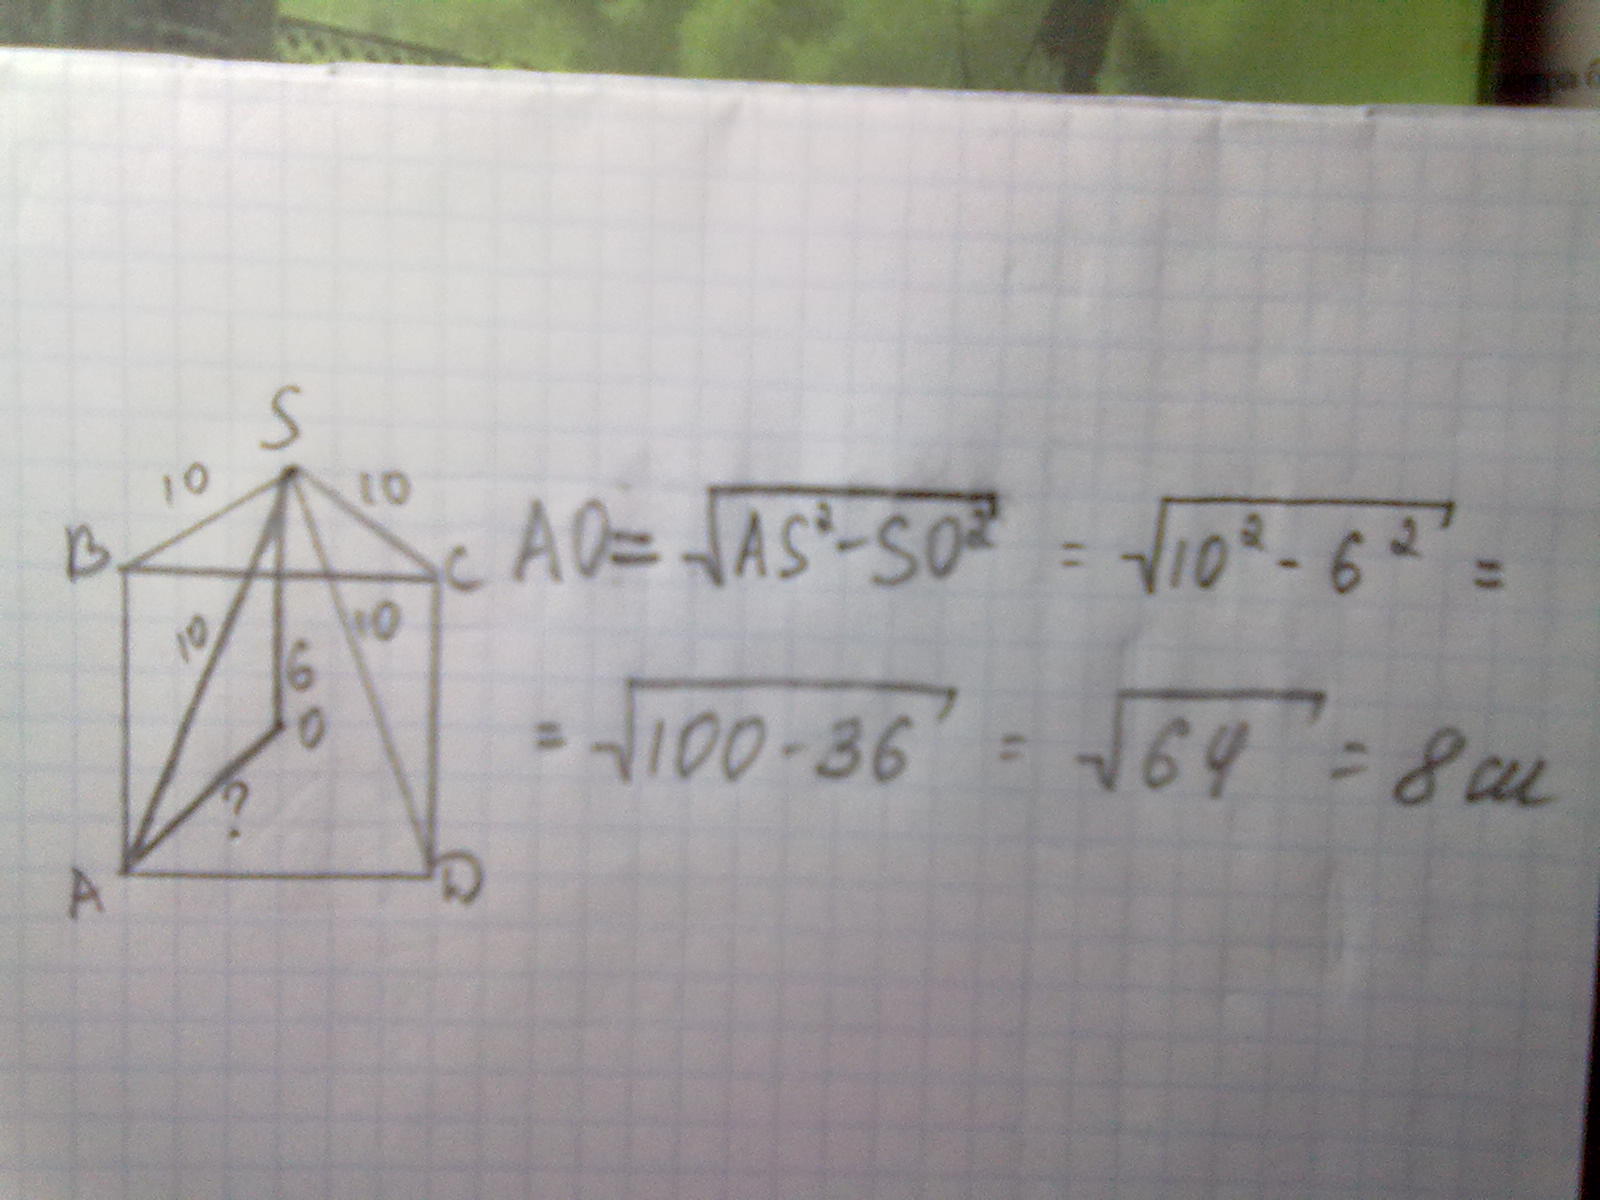 S
10 10
B C
10 10
6
O
?
A D
AO = √(AS² - SO²) = √(10² - 6²) =
= √(100 - 36) = √64 = 8 см